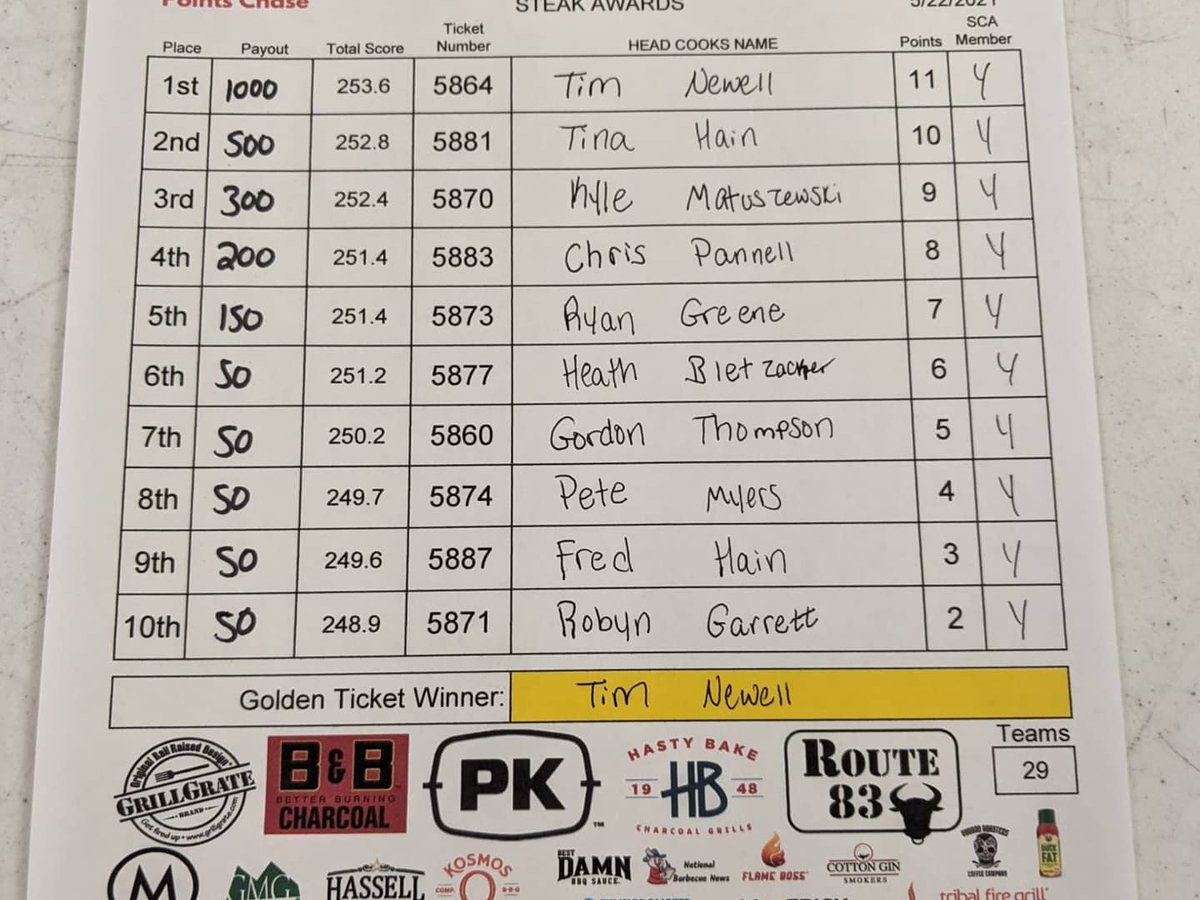 Points Chase STEAK AWARDS 5/22/2021
Place Payout Total Score Ticket Number HEAD COOKS NAME Points SCA Member
1st 1000 253.6 5864 Tim Newell 11 Y
2nd 500 252.8 5881 Tina Hain 10 Y
3rd 300 252.4 5870 Kyle Matuszewski 9 Y
4th 200 251.4 5883 Chris Pannell 8 Y
5th 150 251.4 5873 Ryan Greene 7 Y
6th 50 251.2 5877 Heath Bletzacker 6 Y
7th 50 250.2 5860 Gordon Thompson 5 Y
8th 50 249.7 5874 Pete Myers 4 Y
9th 50 249.6 5887 Fred Hain 3 Y
10th 50 248.9 5871 Robyn Garrett 2 Y
Golden Ticket Winner: Tim Newell
Teams
29
Original Rail Raised Design
GRILLGRATE
BRAND
Get fired up • www.grillgrate.com
B&B
BETTER BURNING
CHARCOAL
PK
TM
HASTY BAKE
19 HB 48
CHARCOAL GRILLS
ROUTE
83
M
GMG
HASSELL
KOSMOS
COMP. Q BBQ
BEST
DAMN
BBQ SAUCE
National
Barbecue News
FLAME BOSS
COTTON GIN
SMOKERS
VOODOO ROASTERS
COFFEE COMPANY
DUCK
FAT
tribal fire grill